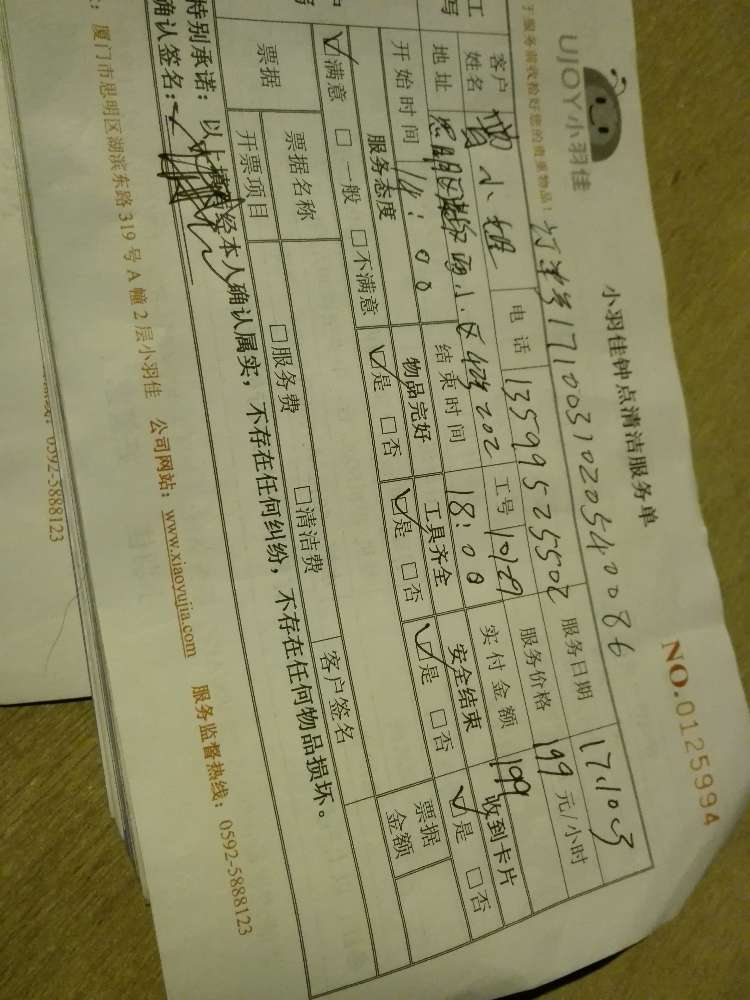 UJOY小羽佳
小羽佳钟点清洁服务单
NO.0125994
于服务前收检好您的贵重物品!
1710031020540086
客户姓名 曾小姐 电话 13599525502 服务日期 17.10.3
地址 思明区 小区 202 工号 服务价格 199 元/小时
开始时间 14:00 结束时间 18:00 实付金额 199
服务态度 物品完好 工具齐全 安全结束 收到卡片
☑满意 □一般 □不满意 ☑是 □否 ☑是 □否 ☑是 □否 ☑是 □否
票据 票据名称 □服务费 □清洁费 客户签名 票据金额
开票项目
特别承诺:以上 经本人确认属实,不存在任何纠纷,不存在任何物品损坏。
确认签名:
厦门市思明区湖滨东路 319 号 A 幢 2 层小羽佳 公司网站:www.xiaoyujia.com 服务监督热线:0592-5888123
0592-5888123